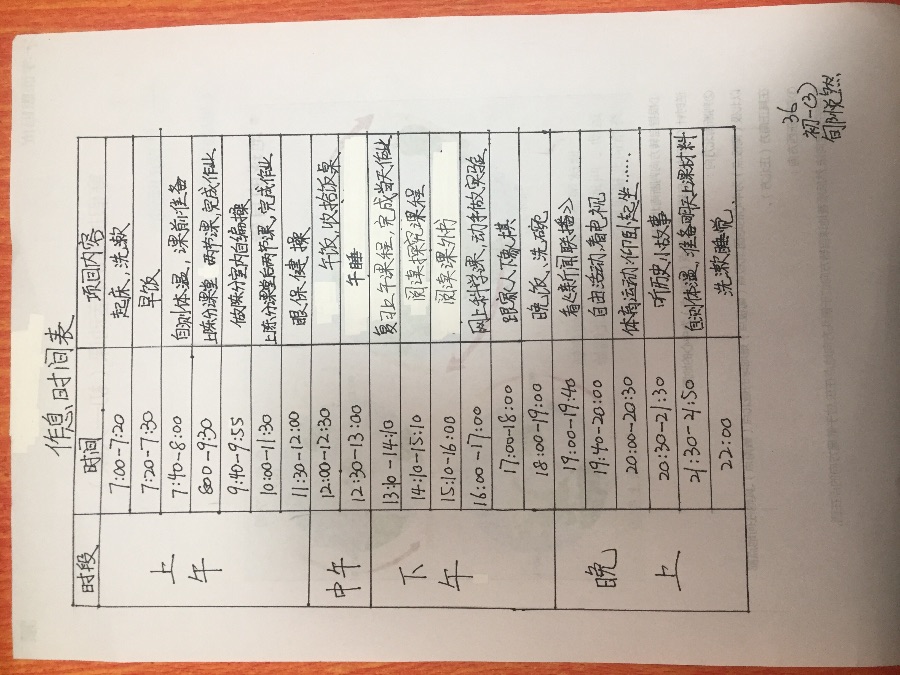 作息时间表
时段 时间 项目内容
上午 7:00-7:20 起床,洗漱
7:20-7:30 早饭
7:40-8:00 自测体温,课前准备
8:00-9:30 上陈分课堂 两节课,完成作业
9:40-9:55 做陈分室内自编操
10:00-11:30 上陈分课堂后两节课,完成作业
11:30-12:00 眼保健操
中午 12:00-12:30 午饭,收拾饭桌
12:30-13:00 午睡
下午 13:10-14:10 复习上午课程,完成当天作业
14:10-15:10 阅读探究课程
15:10-16:00 阅读课外书
16:00-17:00 网上科学课,动手做实验
17:00-18:00 跟家人下象棋
18:00-19:00 晚饭、洗碗
晚上 19:00-19:40 看《新闻联播》
19:40-20:00 自由活动,看电视
20:00-20:30 体育运动,仰卧起坐……
20:30-21:30 听历史小故事
21:30-21:50 自测体温,准备明天上课材料
22:00 洗漱睡觉
36
初一(3)